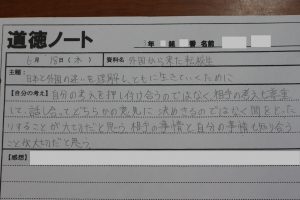 道徳ノート
年 組 番 名前
6月18日(木) 資料名 外国から来た転校生
主題:
日本と外国の違いを理解し、ともに生きていくために
【自分の考え】自分の考えを押し付け合うのではなく、相手の考えも尊重
して、話し合ってどちらかの意見に決めきるのではなく間をとった
りすることが大切だと思う。相手の事情と自分の事情も知り合う
ことが大切だと思う。
【感想】